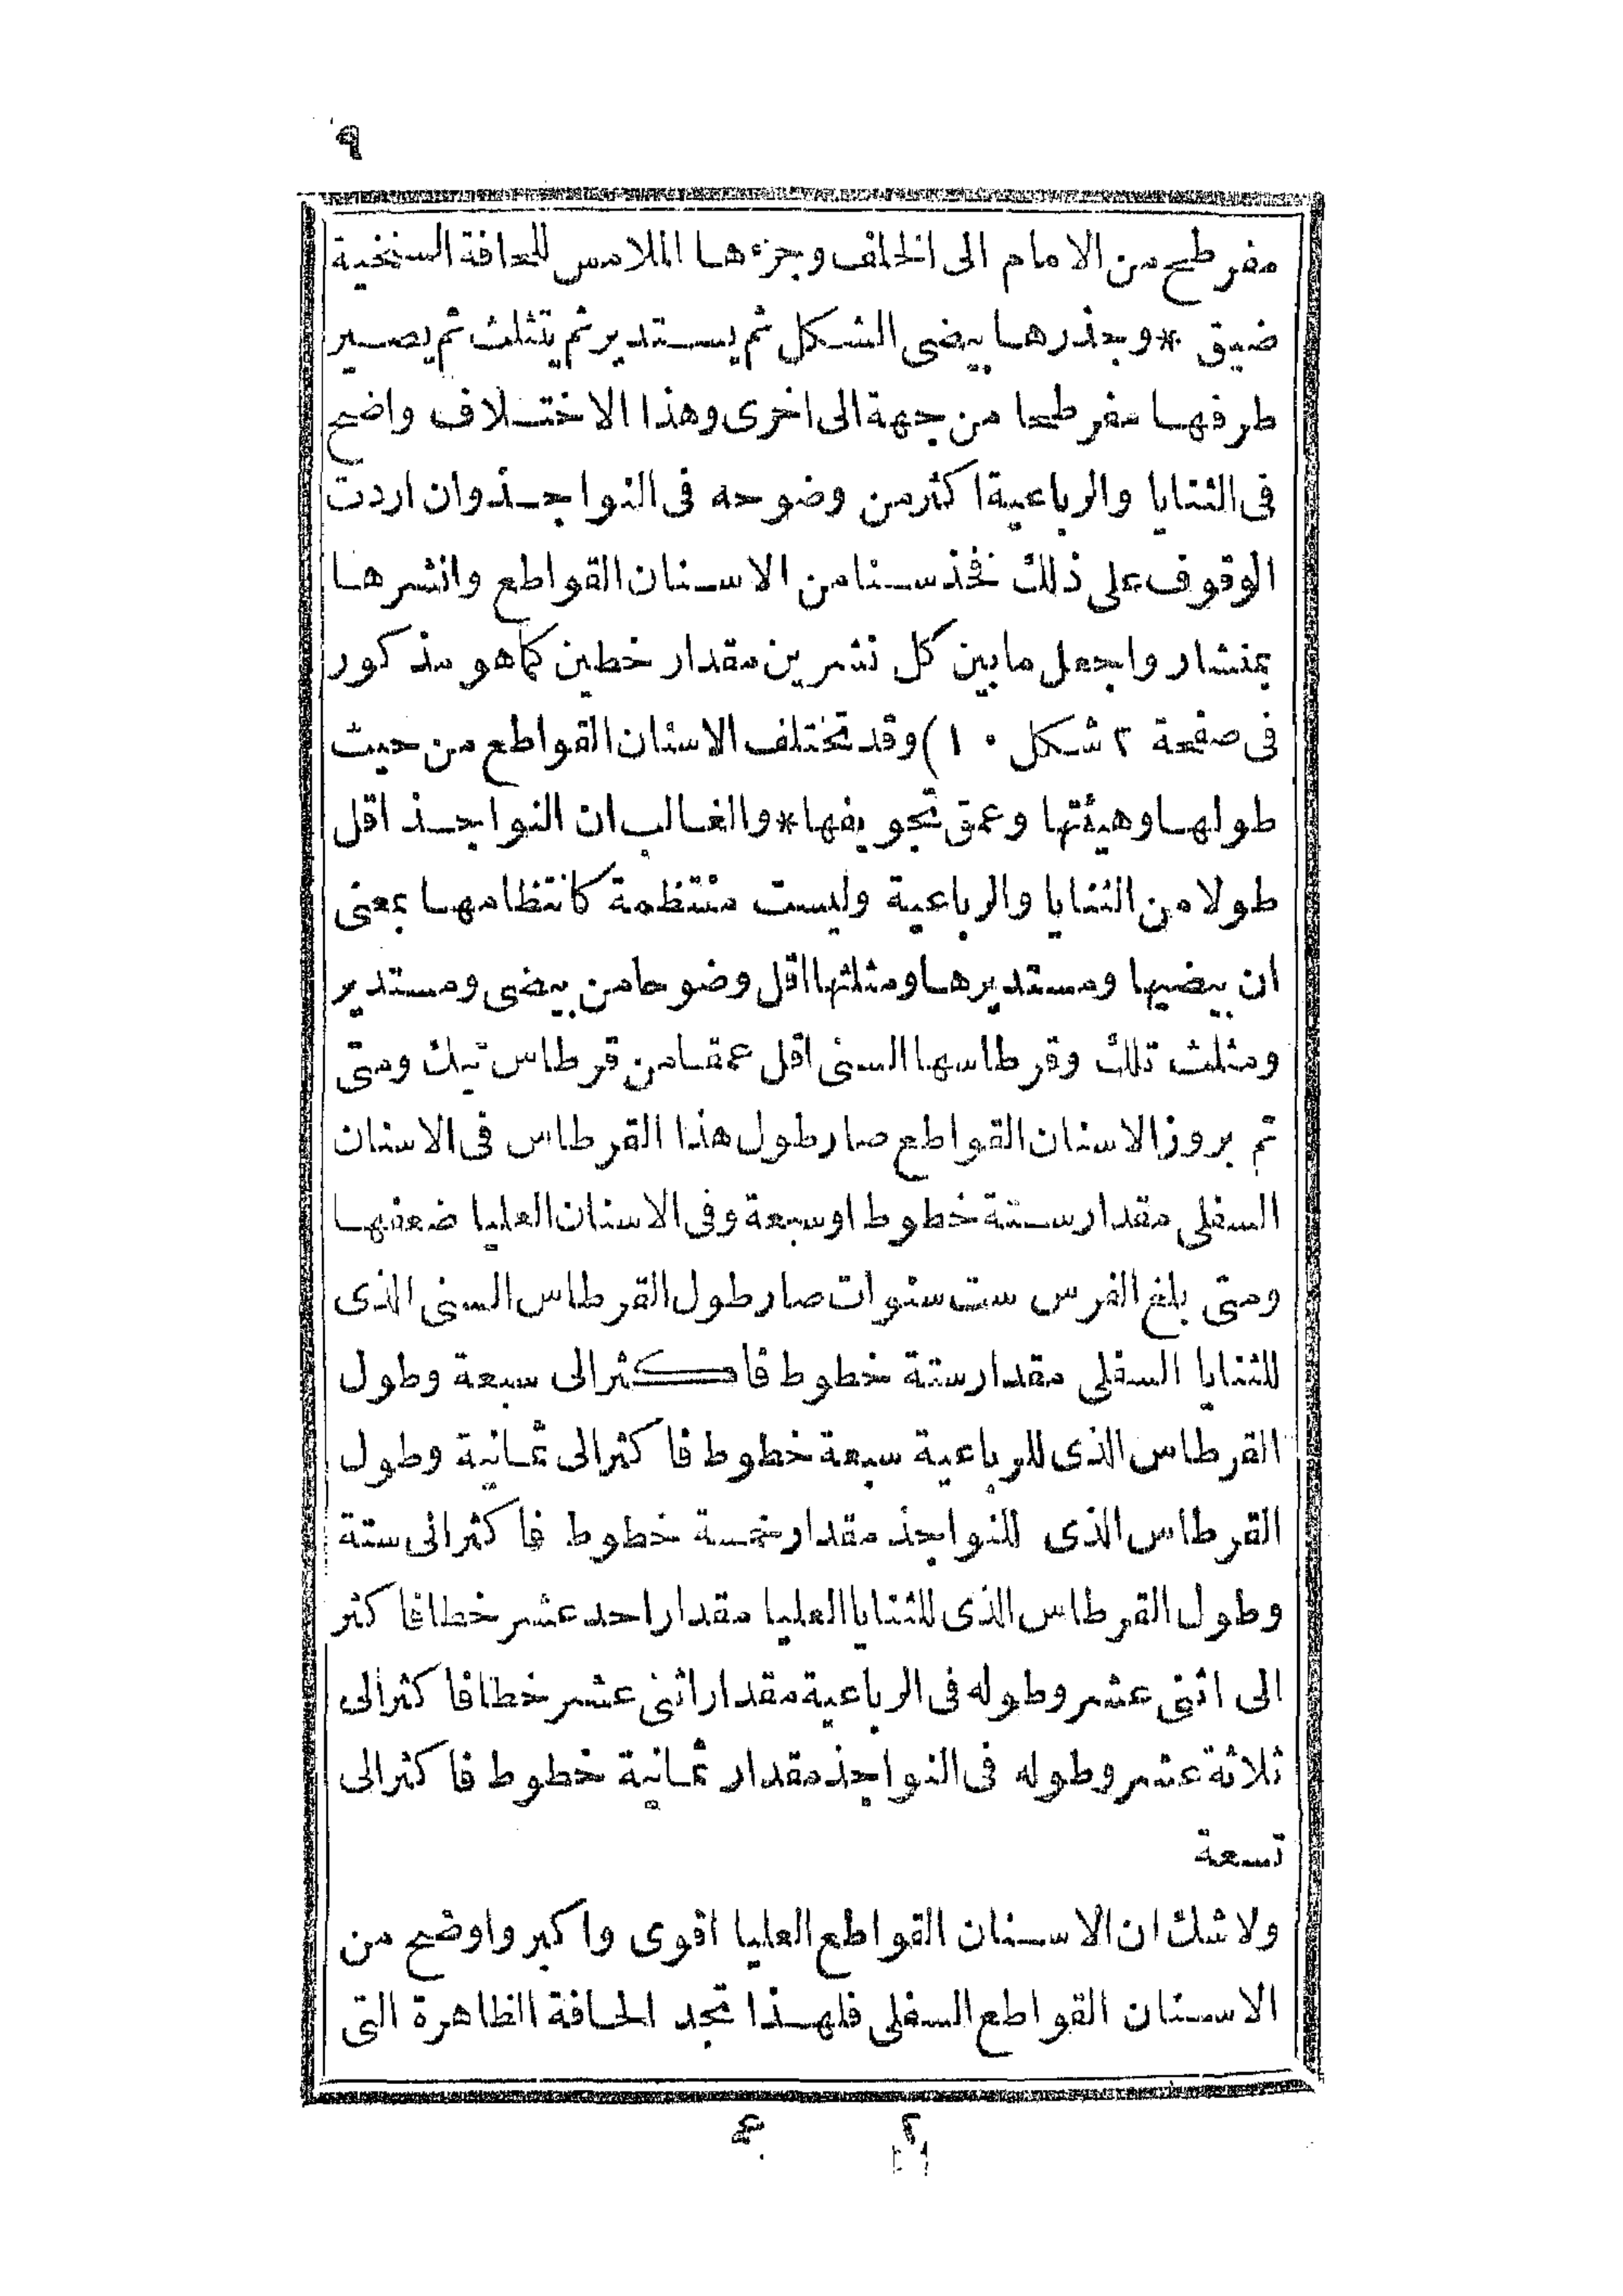 ٩
مفرطح من الامام الى الخلف وجزءها الملامس للحافة السنخية
ضيق * وجذرها بيضى الشكل ثم يستدير ثم يتثلث ثم يصير
طرفها مفرطحا من جهة الى اخرى وهذا الاختلاف واضح
فى الثنايا والرباعية اكثر من وضوحه فى النواجذ وان اردت
الوقوف على ذلك فخذ سنا من الاسنان القواطع وانشرها
بمنشار واجعل ما بين كل نشرين مقدار خطين كما هو مذكور
فى صفحة ٢ شكل ١٠) وقد تختلف الاسنان القواطع من حيث
طولها وهيئتها وعمق تجويفها * والغالب ان النواجذ اقل
طولا من الثنايا والرباعية وليست منتظمة كانتظامها بمعنى
ان بيضيها ومستديرها ومثلثها اقل وضوحا من بيضى ومستدير
ومثلث تلك وقرطاسها السنى اقل عمقا من قرطاس تيك ومتى
تم بروز الاسنان القواطع صار طول هذا القرطاس فى الاسنان
السفلى مقدار ستة خطوط او سبعة وفى الاسنان العليا ضعفها
ومتى بلغ الفرس ست سنوات صار طول القرطاس السنى الذى
للثنايا السفلى مقدار ستة خطوط فاكثر الى سبعة وطول
القرطاس الذى للرباعية سبعة خطوط فاكثر الى ثمانية وطول
القرطاس الذى للنواجذ مقدار خمسة خطوط فاكثر الى ستة
وطول القرطاس الذى للثنايا العليا مقدار احد عشر خطا فاكثر
الى اثنى عشر وطوله فى الرباعية مقدار اثنى عشر خطا فاكثر الى
ثلاثة عشر وطوله فى النواجذ مقدار ثمانية خطوط فاكثر الى
تسعة
ولا شك ان الاسنان القواطع العليا اقوى واكبر واوضح من
الاسنان القواطع السفلى فلهذا تجد الحافة الظاهرة التى
٢